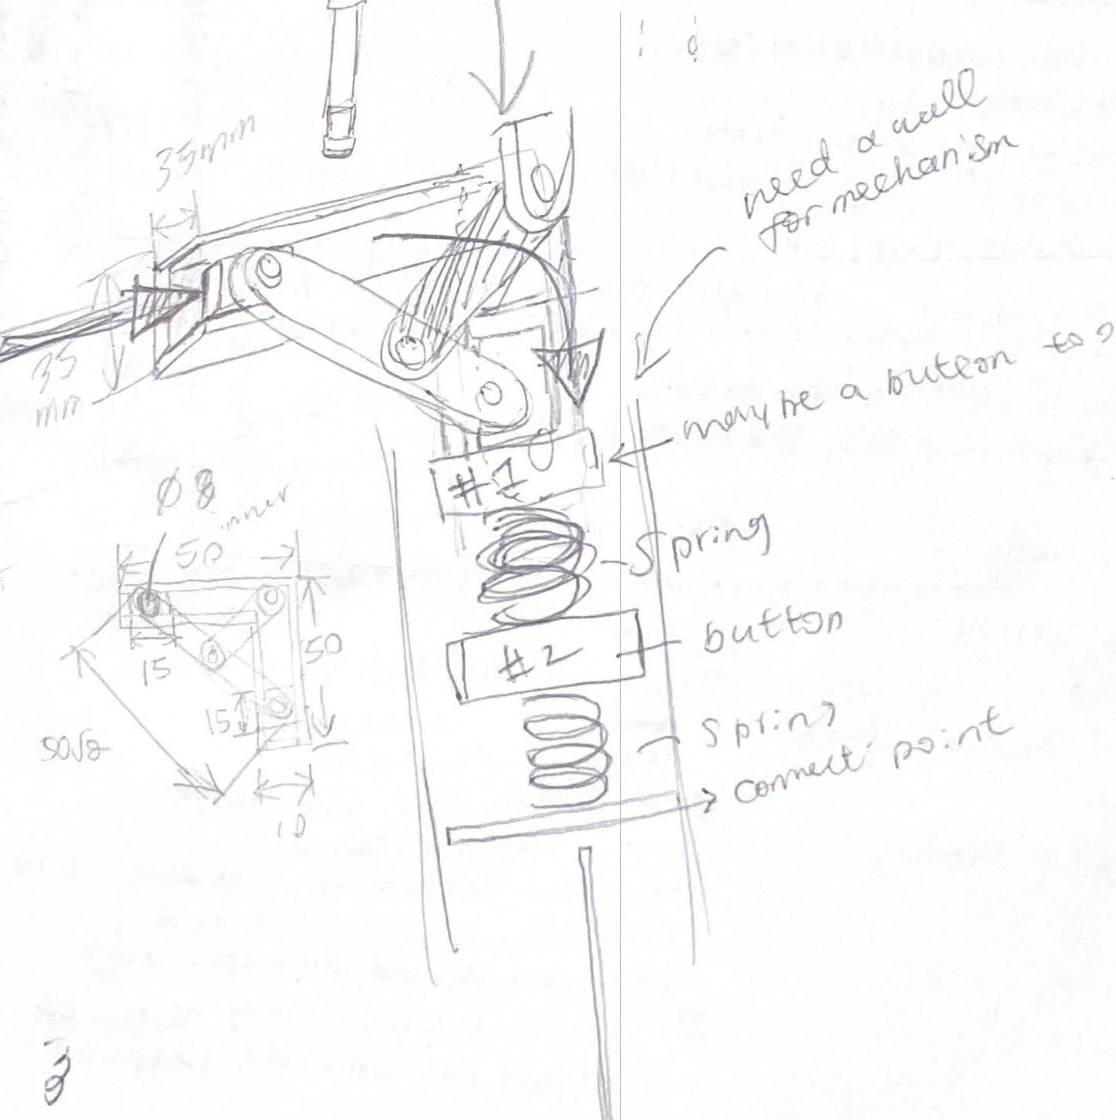 35mm
need a wall
for mechanism
35
mm
maybe a button to
#1
Ø8
inner
50
spring
15
50
button
#2
15
50√2
spring
connect point
10
3